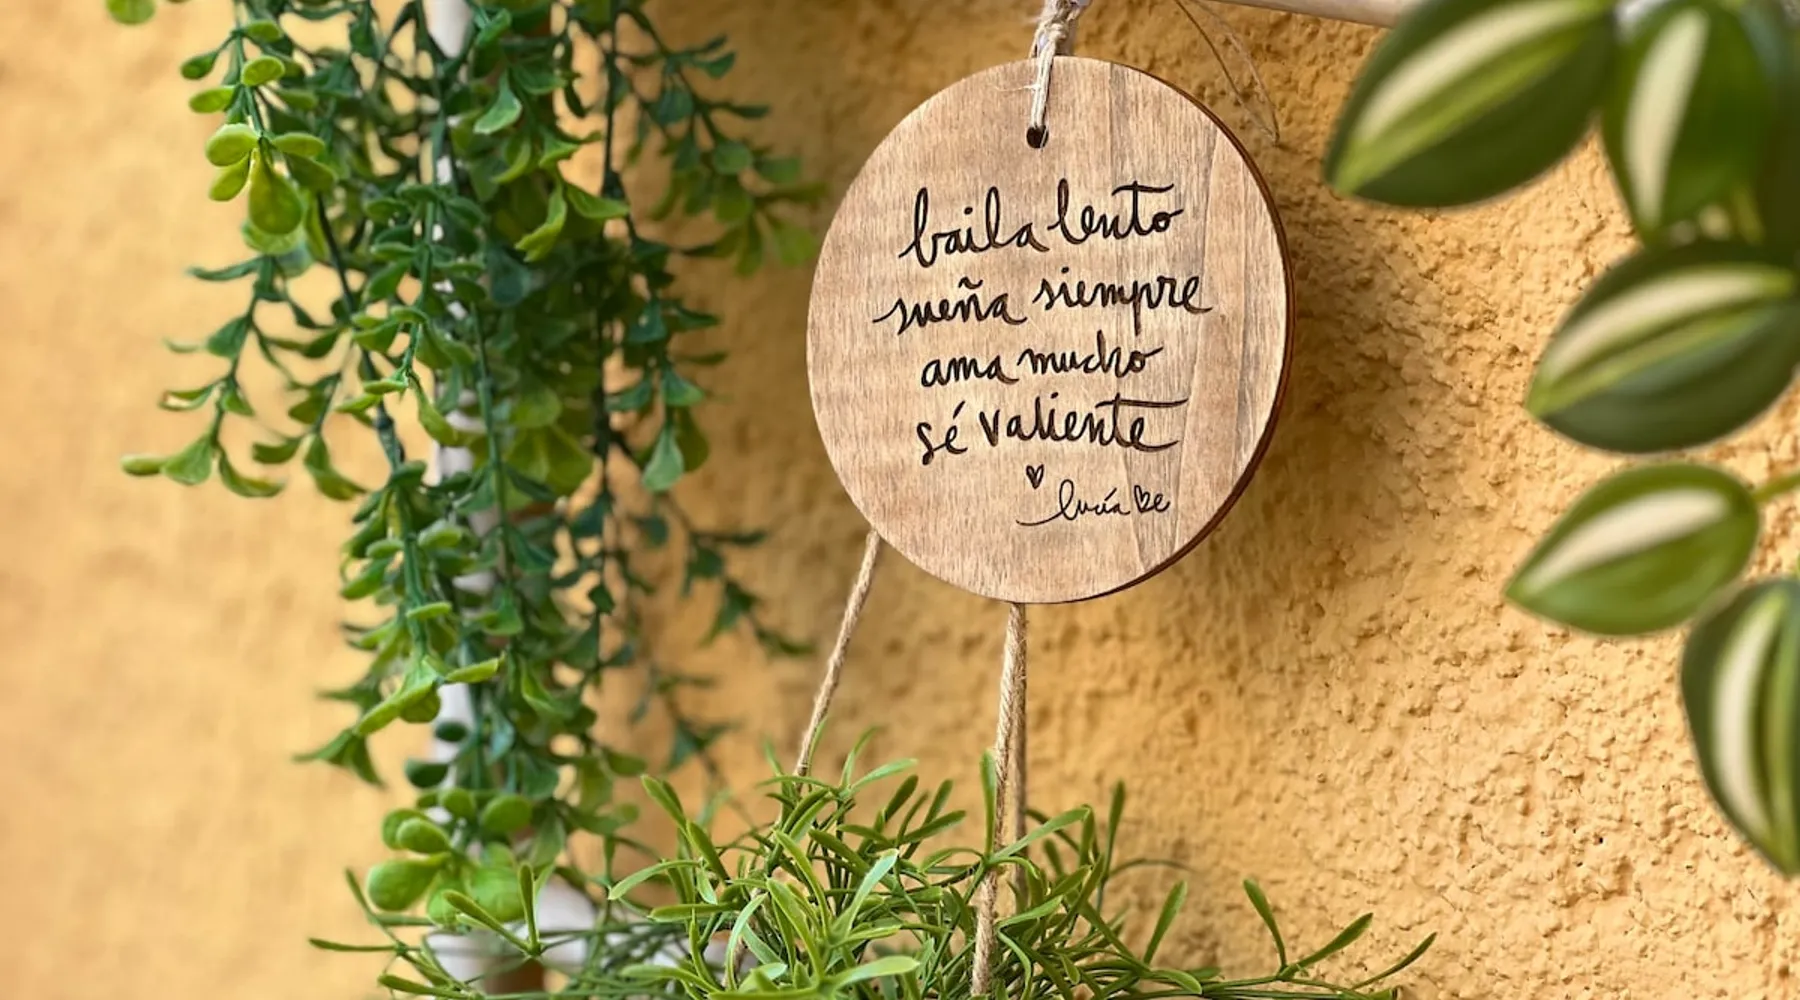 baila lento
sueña siempre
ama mucho
sé valiente
lucía be